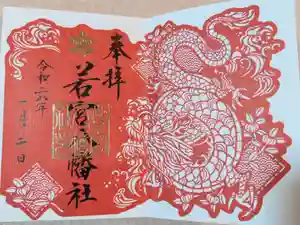 奉拝
若宮八幡社
令和六年
一月二日